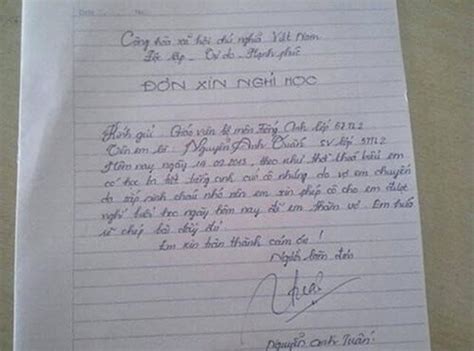 Cộng hòa xã hội chủ nghĩa Việt Nam
Độc lập - Tự do - Hạnh phúc
ĐƠN XIN NGHỈ HỌC
Kính gửi : Giáo viên bộ môn tiếng Anh lớp 57TL2
Tên em là : Nguyễn Anh Tuấn SV lớp 57TL2
Hôm nay, ngày 19.09.2015, theo như thời khoá biểu em
có học tiết tiếng anh của cô nhưng do vợ em chuyển
dạ sắp sinh cháu nhỏ nên em xin phép cô cho em được
nghỉ buổi học ngày hôm nay để em thăm vợ. Em hứa
sẽ chép bài đầy đủ
Em xin chân thành cảm ơn !
Người viết đơn
Tuấn
Nguyễn Anh Tuấn